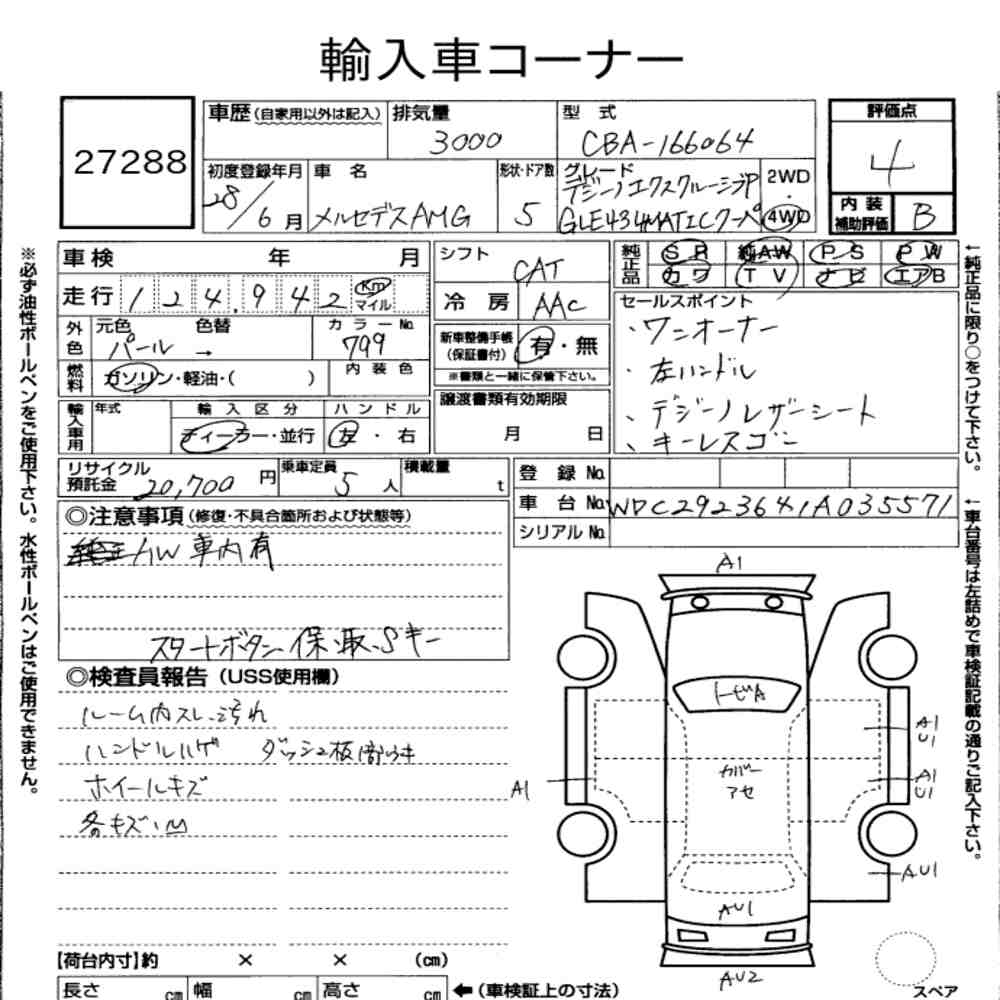 輸入車コーナー
27288
車歴(自家用以外は記入)
排気量
3000
型 式
CBA-166064
評価点
4
初度登録年月
28/6月
車 名
メルセデスAMG
形状・ドア数
5
グレード
デジーノエクスクルーシブP
GLE434MATICクーペ
2WD
・
4WD
内 装
補助評価
B
車検 年 月
シフト
CAT
純正品
SR 純AW PS PW
カワ TV ナビ エアB
走行 124,942 Km マイル
冷 房
AAC
セールスポイント
・ワンオーナー
・左ハンドル
・デジーノレザーシート
・キーレスゴー
外色
元色 色替
パール →
カラーNo.
799
新車整備手帳
(保証書付)
有・無
※書類と一緒に保管下さい。
燃料
ガソリン・軽油・( )
内 装 色
輸入車用
年式
輸 入 区 分
ディーラー・並行
ハ ン ド ル
左・右
譲渡書類有効期限
月 日
リサイクル
預託金
20,700円
乗車定員
5人
積載量
t
登 録 No.
車 台 No.
WDC2923641A035571
シリアル No.
◎注意事項(修復・不具合箇所および状態等)
AW 車内有
スタートボタン 保・取・Sキー
◎検査員報告(USS使用欄)
ルーム内スレ、汚れ
ハンドルハゲ ダッシュ板部
ホイールキズ
各キズ、凹
A1
トビA
カバー
アセ
A1
U1
A1
U1
A1
AU1
AU1
AU2
スペア
【荷台内寸】約 × × (cm)
長さ cm 幅 cm 高さ cm ←(車検証上の寸法)
※必ず油性ボールペンをご使用下さい。水性ボールペンはご使用できません。
←純正品に限り○をつけて下さい。
←車台番号は左詰めで車検証記載の通りご記入下さい。